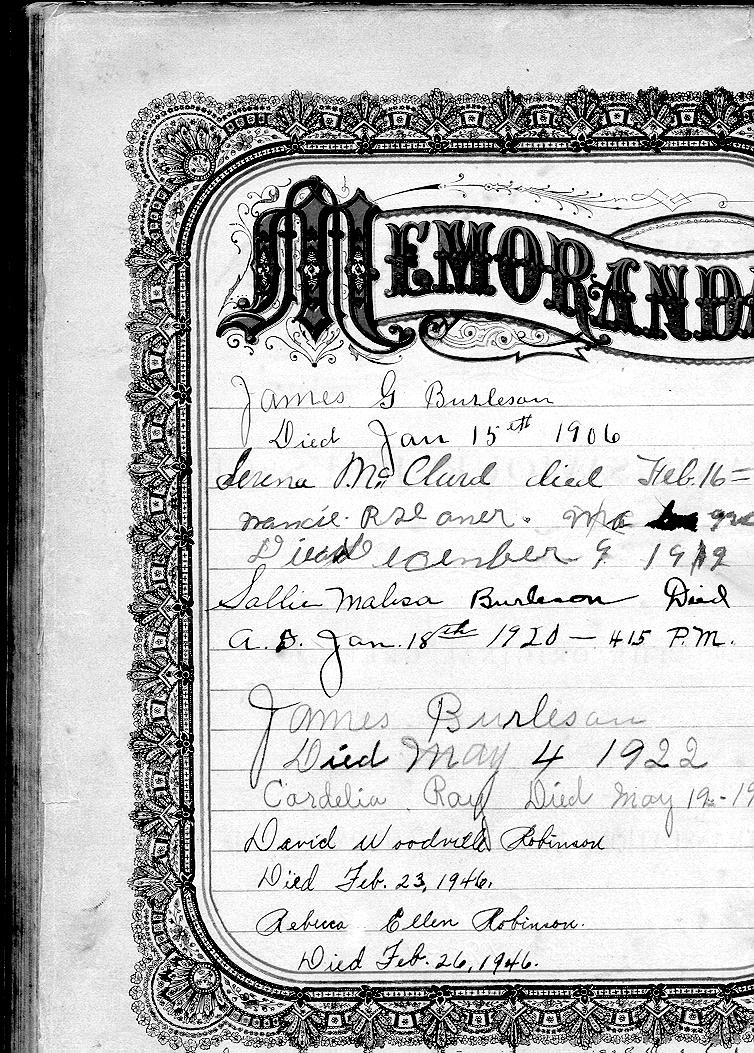 MEMORANDA
James G Burleson
Died Jan 15th 1906
Serena Mc Clurd died Feb. 16=
Died December 9 1912
Sallie Malisa Burleson Died
A.D. Jan. 18th 1920 — 415 P.M.
James Burleson
Died May 4 1922
Cordelia Ray Died May 19-19
David Woodville Robinson
Died Feb. 23, 1946.
Rebecca Ellen Robinson.
Died Feb. 26, 1946.